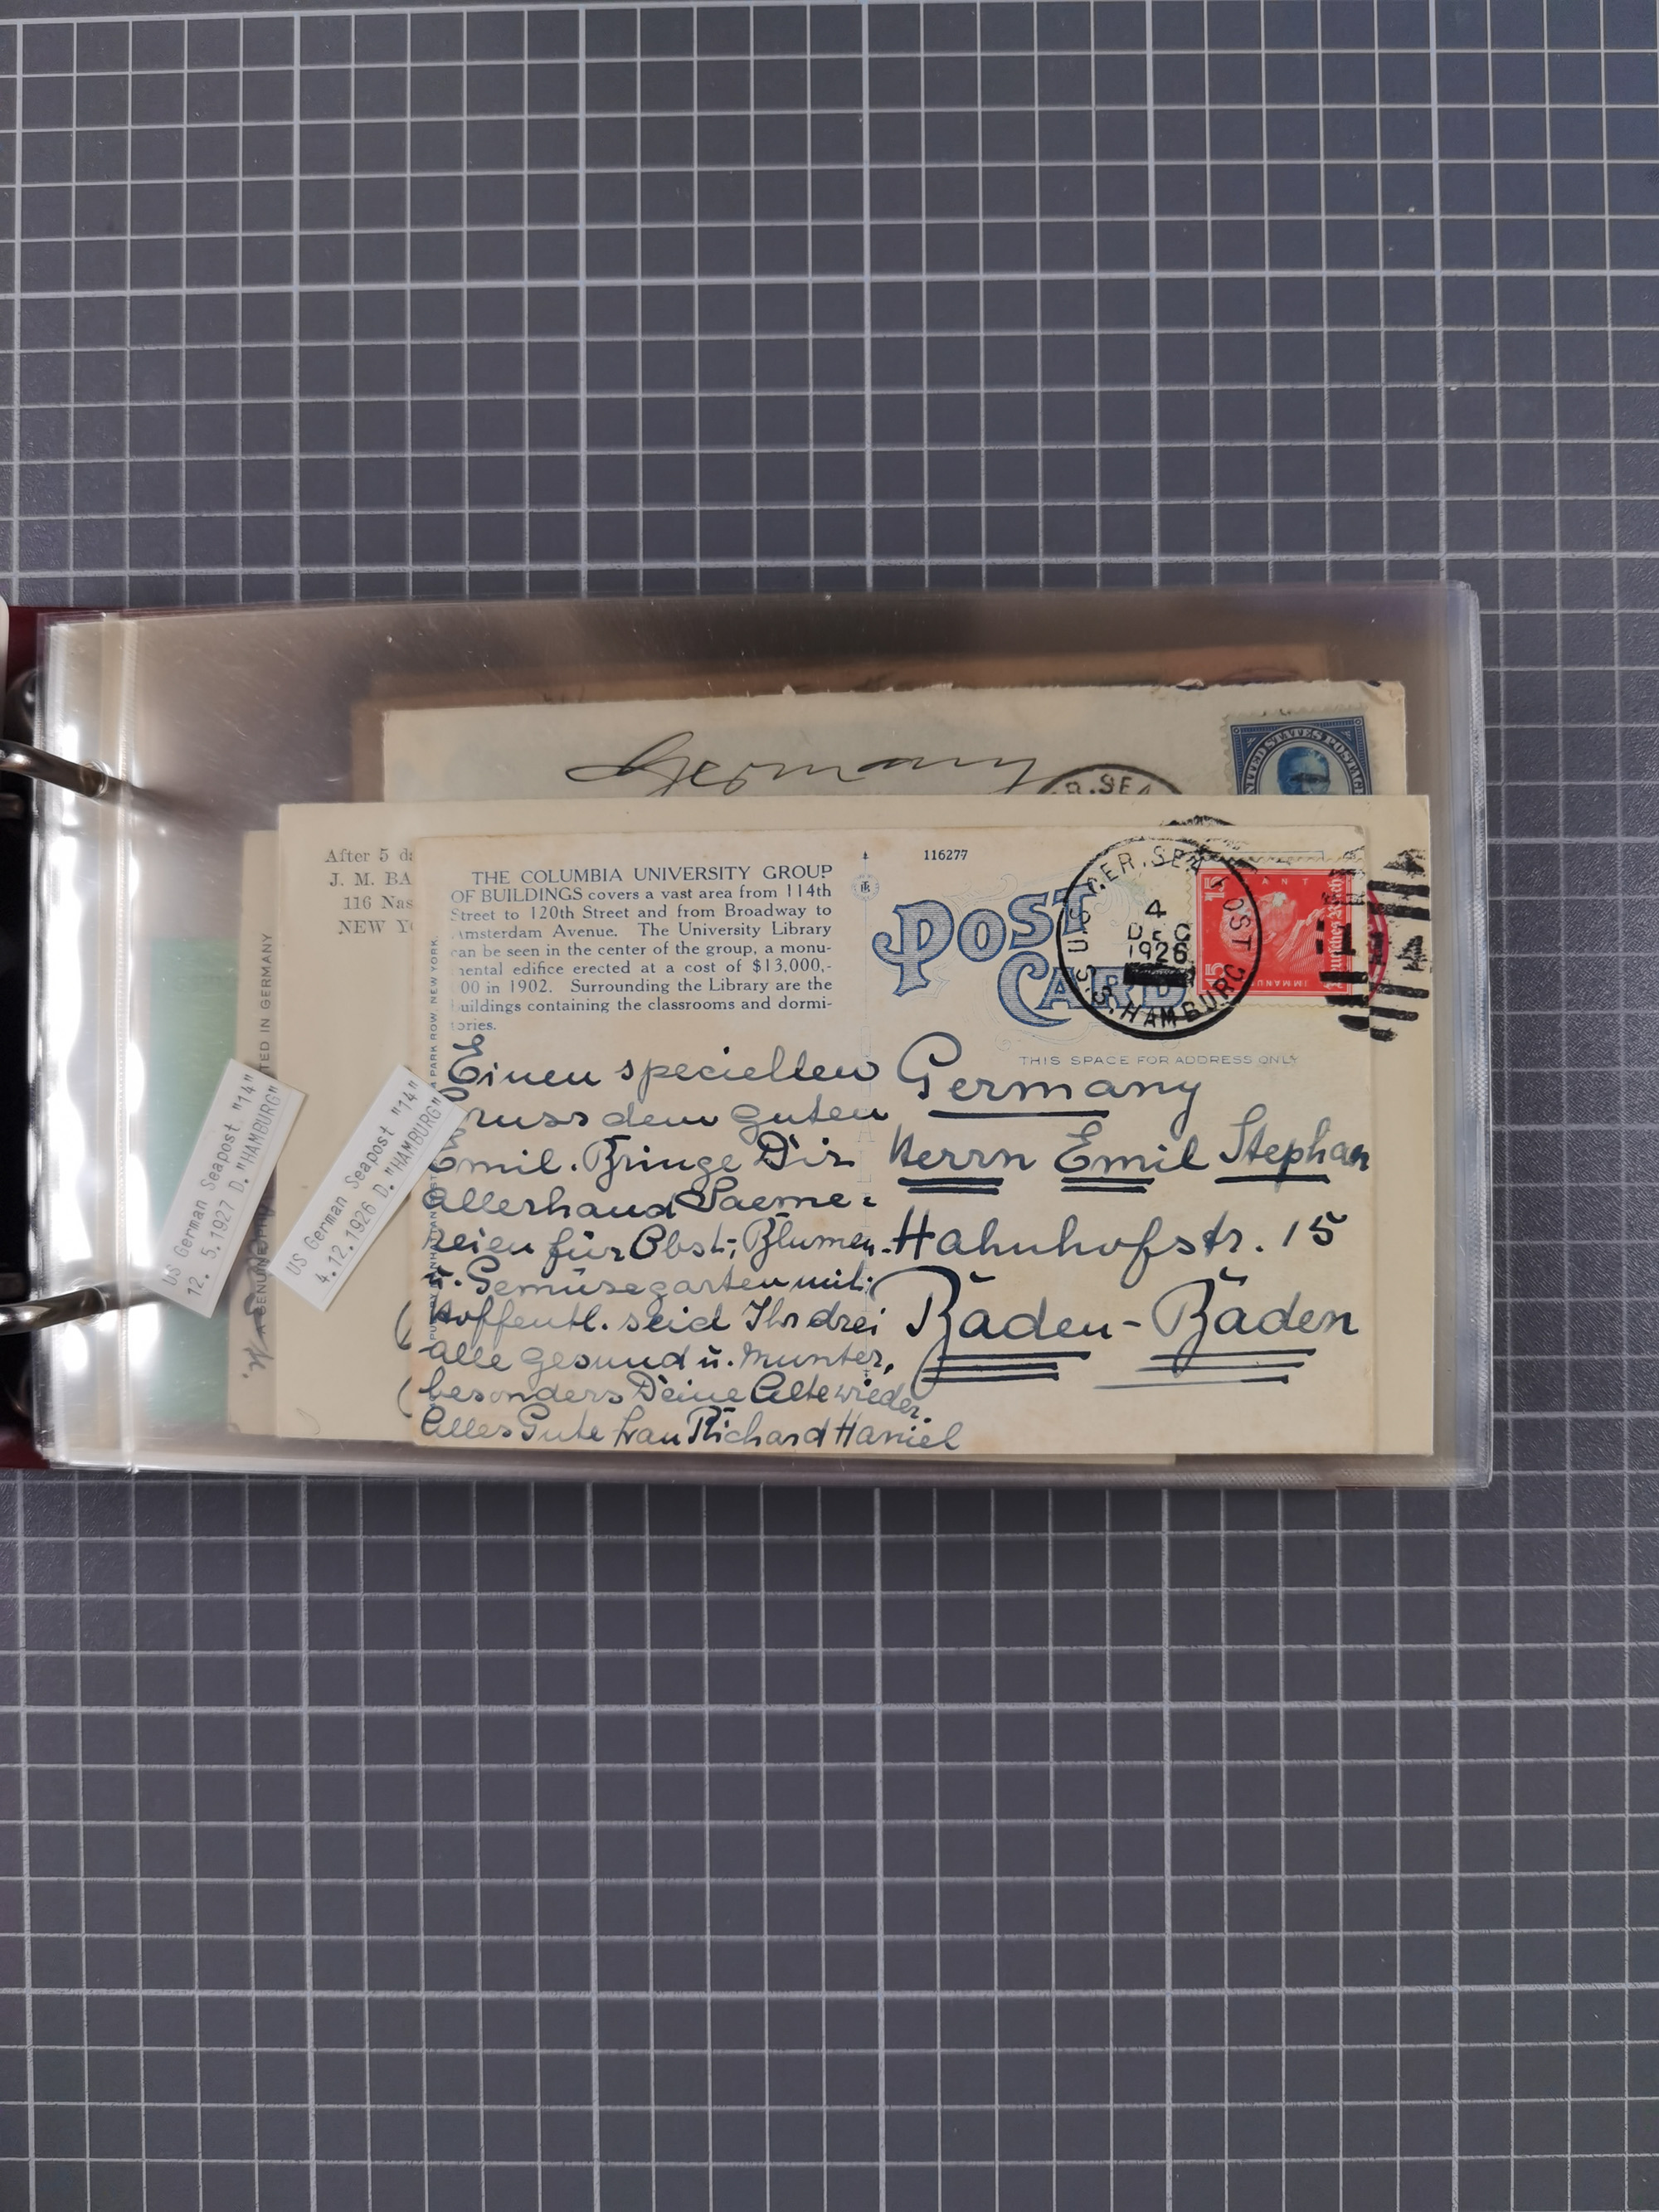 Germany
R. SEA
UNITED STATES POSTAGE
After 5 da
J. M. BA
116 Nas
NEW YO
TED IN GERMANY
A GENUINE
US German Seapost "14"
12. 5.1927 D."HAMBURG"
US German Seapost "14"
4.12.1926 D."HAMBURG"
THE COLUMBIA UNIVERSITY GROUP
OF BUILDINGS covers a vast area from 114th
Street to 120th Street and from Broadway to
Amsterdam Avenue. The University Library
can be seen in the center of the group, a monu-
mental edifice erected at a cost of $13,000,-
00 in 1902. Surrounding the Library are the
buildings containing the classrooms and dormi-
tories.
PARK ROW, NEW YORK.
116277
POST
CARD
U.S. GER. SEA POST
4
DEC
1926
S.S. HAMBURG
15
15
Deutsches Reich
THIS SPACE FOR ADDRESS ONLY
Einen speciellen
Gruss dem guten
Emil. Bringe Dir
allerhand Saeme:
reien für Obst-, Blumen-
u. Gemüsegarten mit.
Hoffentl. seid Ihr drei
alle gesund u. munter,
besonders Deine Alte wieder.
Alles Gute Frau Richard Haniel
Germany
Herrn Emil Stephan
Hahnhofstr. 15
Baden-Baden